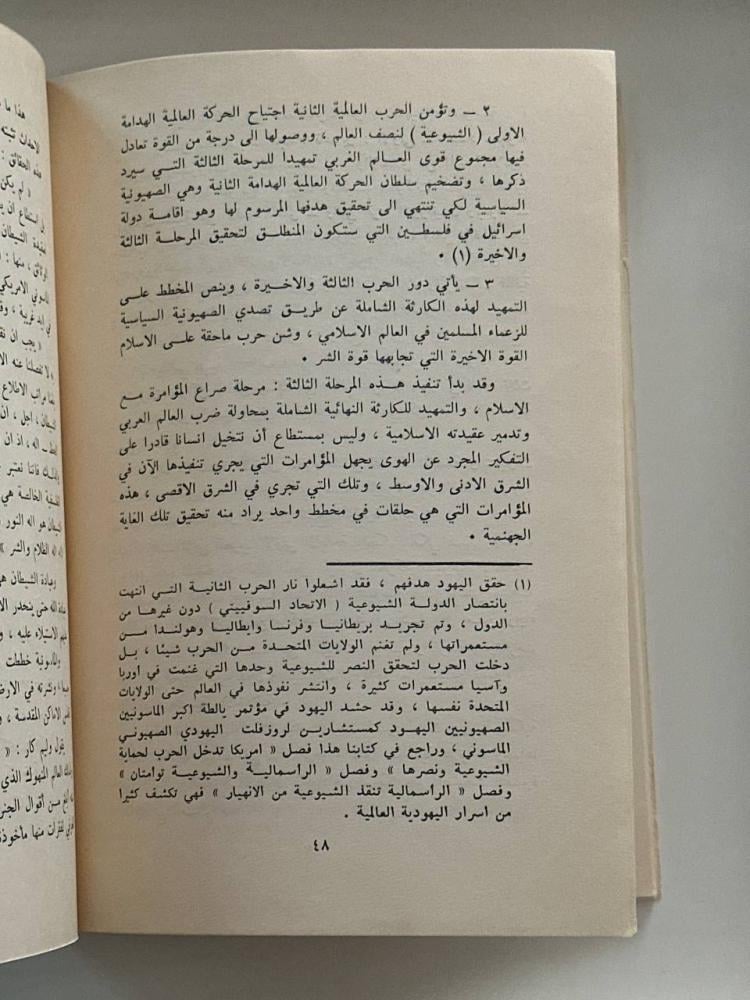 ٢ ــ وتؤمن الحرب العالمية الثانية اجتياح الحركة العالمية الهدامة
الاولى ( الشيوعية ) لنصف العالم ، ووصولها الى درجة من القوة تعادل
فيها مجموع قوى العــالم الغربي تمهيدا للمرحلة الثالثة التــي سيرد
ذكرها ، وتضخيم سلطان الحركة العالمية الهدامة الثانية وهي الصهيونية
السياسية لكي تنتهي الى تحقيق هدفها المرسوم لها وهو اقامــة دولة
اسرائيل في فلسطــين التي ستكون المنطلق لتحقيق المرحلــة الثالثة
والاخيرة (١) ٠
٣ ــ يأتي دور الحرب الثالثة والاخــيرة ، وينص المخطط علــى
التمهيد لهذه الكارثة الشاملة عن طريــق تصدي الصهيونية السياسية
للزعماء المسلمين في العالم الاسلامي ، وشن حرب ماحقة علــى الاسلام
القوة الاخيرة التي تجابهها قوة الشر ٠
وقد بدأ تنفيذ هــذه المرحلة الثالثة : مرحلة صراع المؤامرة مــع
الاسلام ، والتمهيد للكارثة النهائية الشاملة بمحاولة ضرب العالم العربي
وتدمير عقيدته الاسلامية ، وليس بمستطاع أن نتخيل انسانا قادرا على
التفكير المجرد عن الهوى يجهل المؤامرات التي يجري تنفيذها الآن في
الشرق الادنى والاوسط ، وتلك التي تجري في الشرق الاقصى ، هذه
المؤامرات التي هي حلقات في مخطط واحد يراد منه تحقيق تلك الغاية
الجهنمية ٠
(١) حقق اليهود هدفهم ، فقد اشعلوا نار الحرب الثانيــة التــي انتهت
بانتصار الدولة الشيوعية ( الاتحاد السوفييتي ) دون غيرها من
الدول ، وتم تجريد بريطانيــا وفرنسا وايطاليا وهولنــدا مــن
مستعمراتها ، ولم تغنم الولايات المتحدة مــن الحرب شيئا ، بــل
دخلت الحرب لتحقق النصر للشيوعية وحدها التي غنمت في اوربا
وآسيا مستعمرات كثيرة ، وانتشر نفوذها في العالم حتى الولايات
المتحدة نفسها ، وقد حشد اليهود في مؤتمر يالطة اكبر الماسونيين
الصهيونيين اليهــود كمستشاريــن لروزفلت اليهودي الصهيونــي
الماسوني ، وراجع في كتابنا هذا فصل « امريكا تدخل الحرب لحماية
الشيوعية ونصرها » وفصل « الرأسماليــة والشيوعيــة توأمتان »
وفصل « الرأسمالية تنقذ الشيوعية من الانهيار » فهي تكشف كثيرا
من اسرار اليهودية العالمية .
٤٨